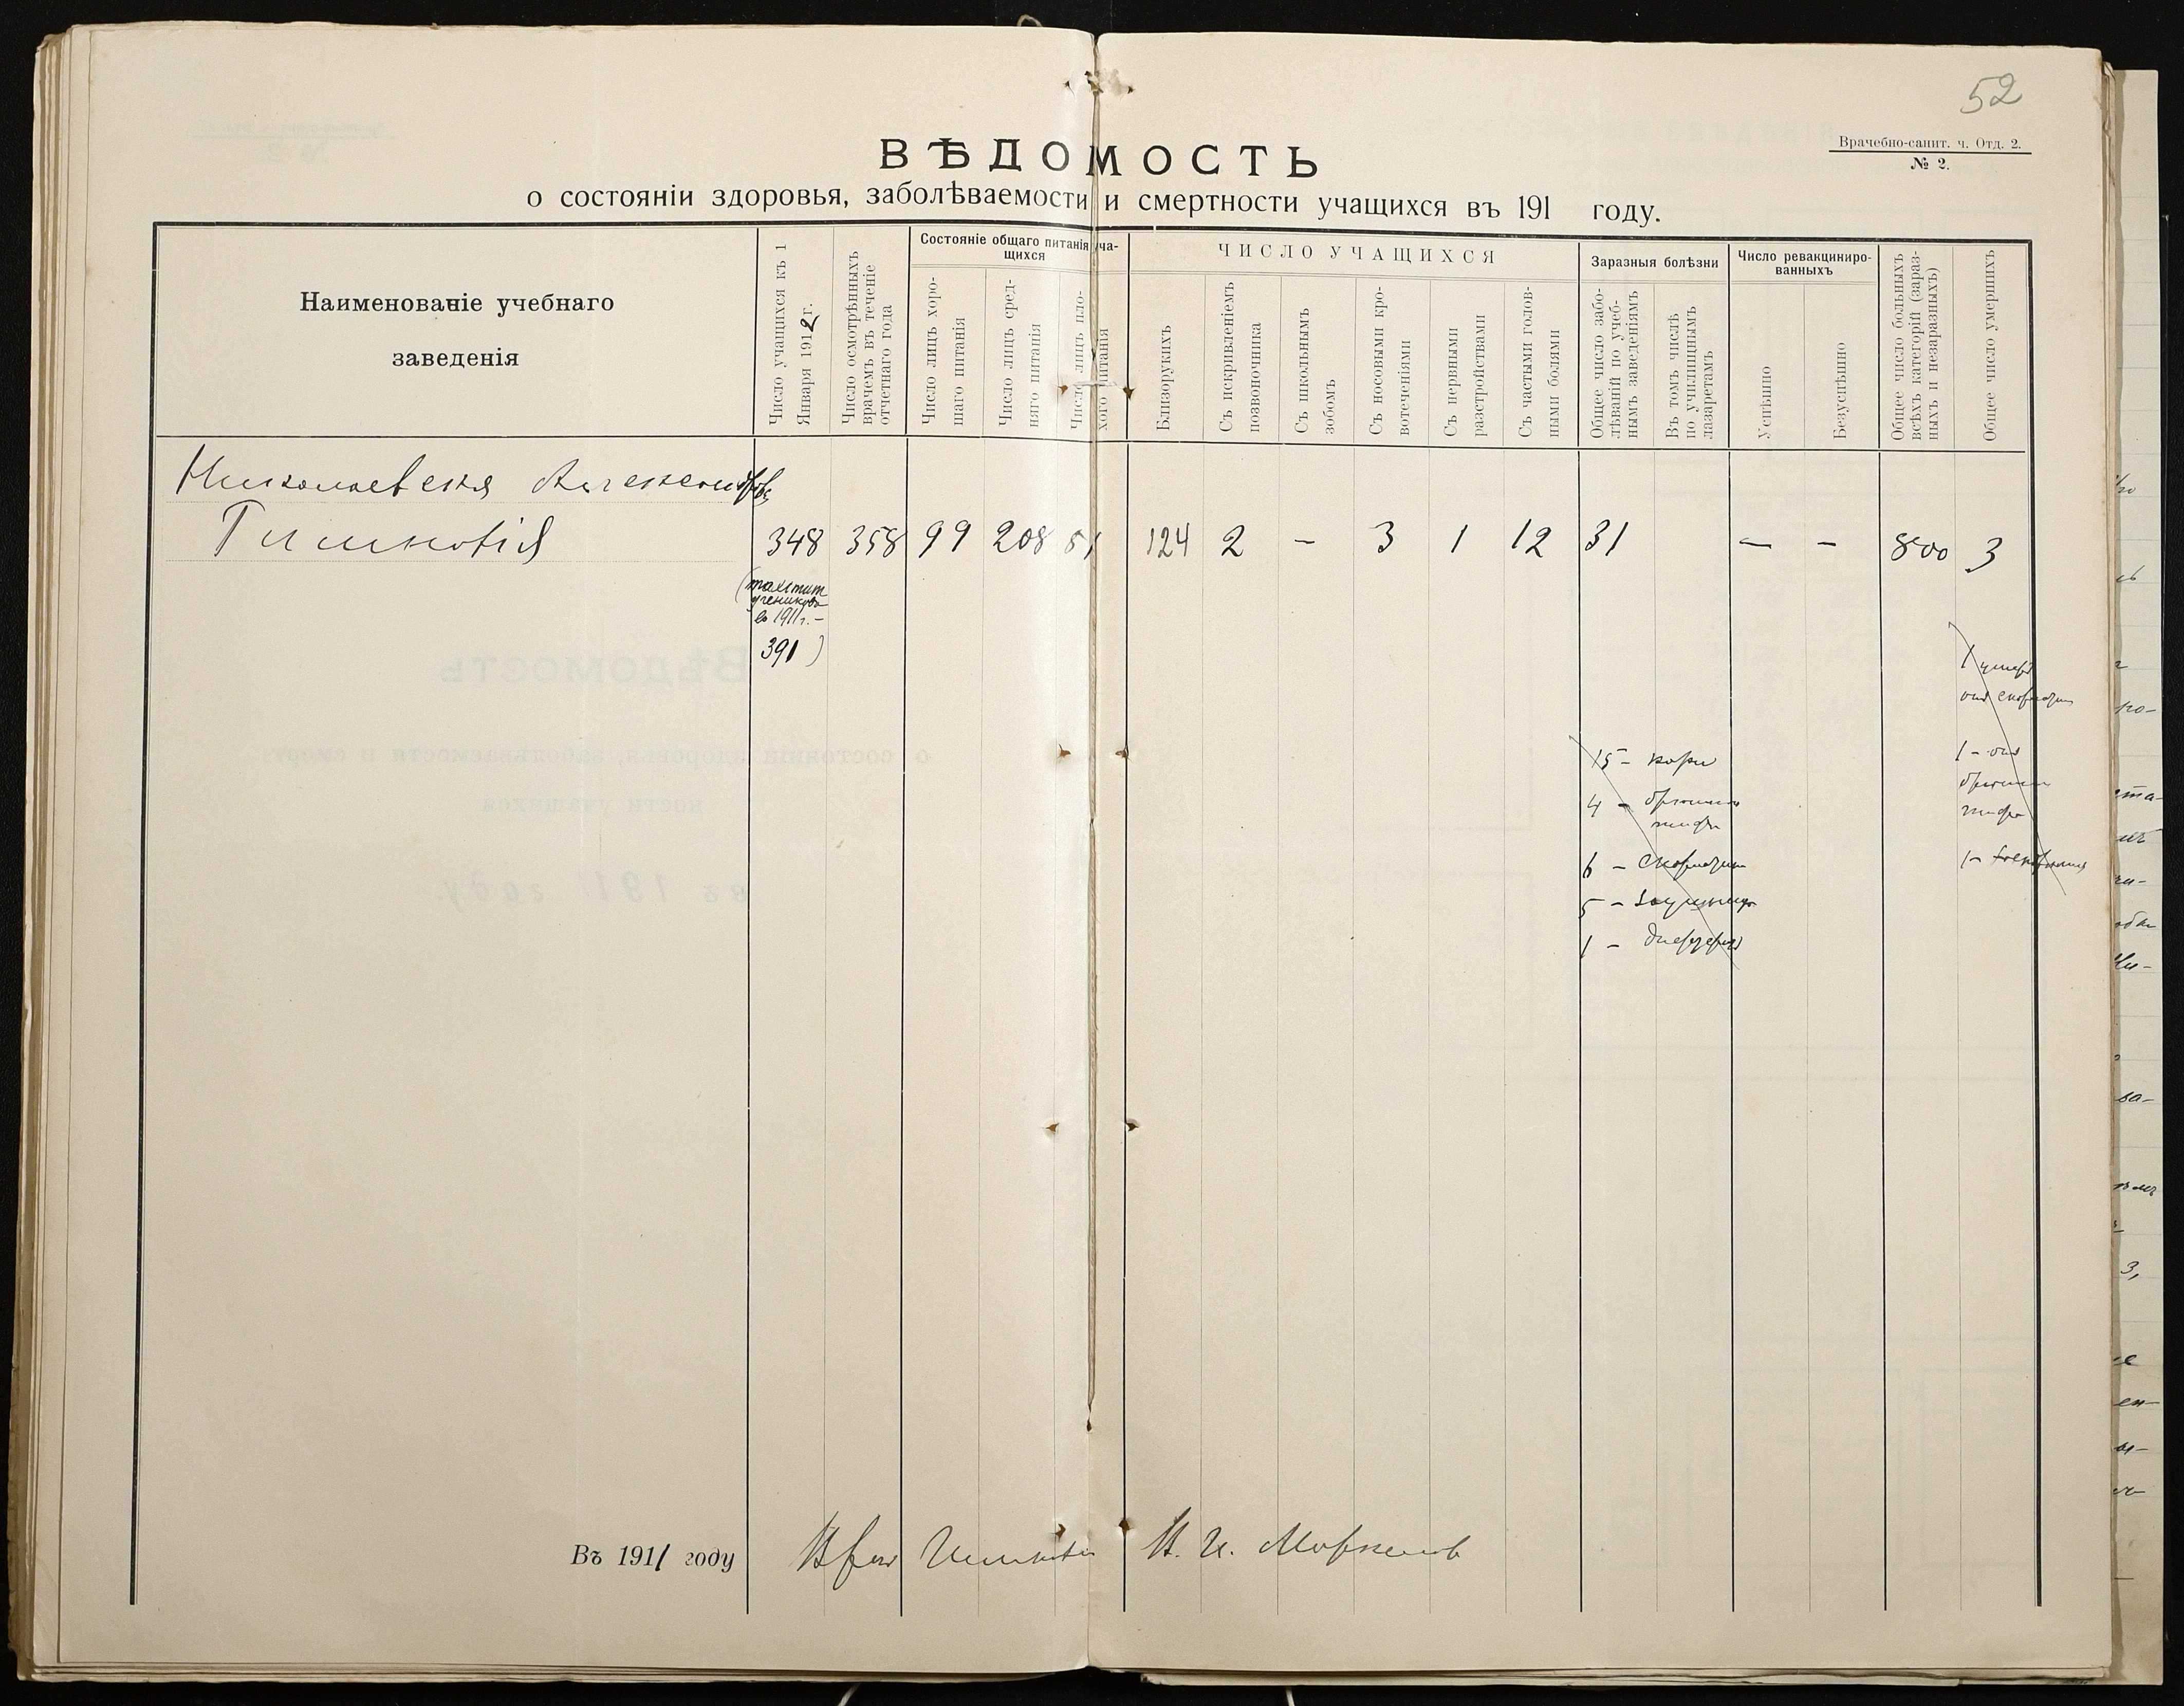 52
Врачебно-санит. ч. Отд. 2.
№ 2.
ВѢДОМОСТЬ
о состояніи здоровья, заболѣваемости и смертности учащихся въ 191 году.
Наименованіе учебнаго
заведенія
Число учащихся къ 1
Января 1912 г.
Число осмотрѣнныхъ
врачемъ въ теченіе
отчетнаго года
Состояніе общаго питанія уча-
щихся
Число лицъ хоро-
шаго питанія
Число лицъ сред-
няго питанія
Число лицъ пло-
хого питанія
ЧИСЛО УЧАЩИХСЯ
Близорукихъ
Съ искривленіемъ
позвоночника
Съ школьнымъ
зобомъ
Съ носовыми кро-
вотеченіями
Съ нервными
разстройствами
Съ частыми голов-
ными болями
Заразныя болѣзни
Общее число забо-
лѣваній по учеб-
нымъ заведеніямъ
Въ томъ числѣ
по училищнымъ
лазаретамъ
Число ревакциниро-
ванныхъ
Успѣшно
Безуспѣшно
Общее число больныхъ
всѣхъ категорій (зараз-
ныхъ и незаразныхъ)
Общее число умершихъ
Николаевская Александров
Гимназія 348 358 99 208 51 124 2 - 3 1 12 31 - - 800 3
учениковъ
въ 1911 г. -
391)
1 умеръ
отъ скарлатины
1 - отъ
брюшн
тифа
15 - кори
4 - брюшн
тифа
6 - скарлатин
5 -
1 -
1 -
Въ 1911 году Врач Гимназіи